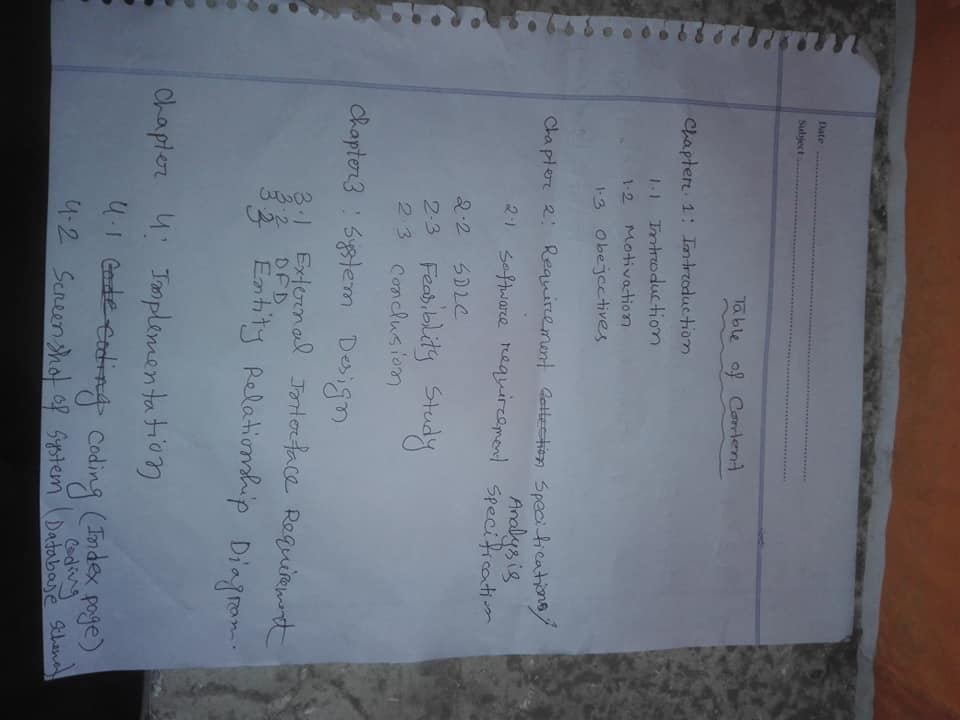 Date ........................
Subject ........................
Table of Content
Chapter. 1: Introduction
1.1 Introduction
1.2 Motivation
1.3 Obejectives
Chapter 2: Requirement Collection Specifications/
Analysis
2.1 Software requirement specification
2.2 SDLC
2.3 Feasiblity Study
2.3 conclusion
Chapter3: System Design
3.1 External Interface Requirement
3.2 DFD
3.3 Entity Relationship Diagram.
Chapter 4: Implementation
4.1 Code Coding Coding (Index page)
coding
4.2 Screenshot of System (Database schema)